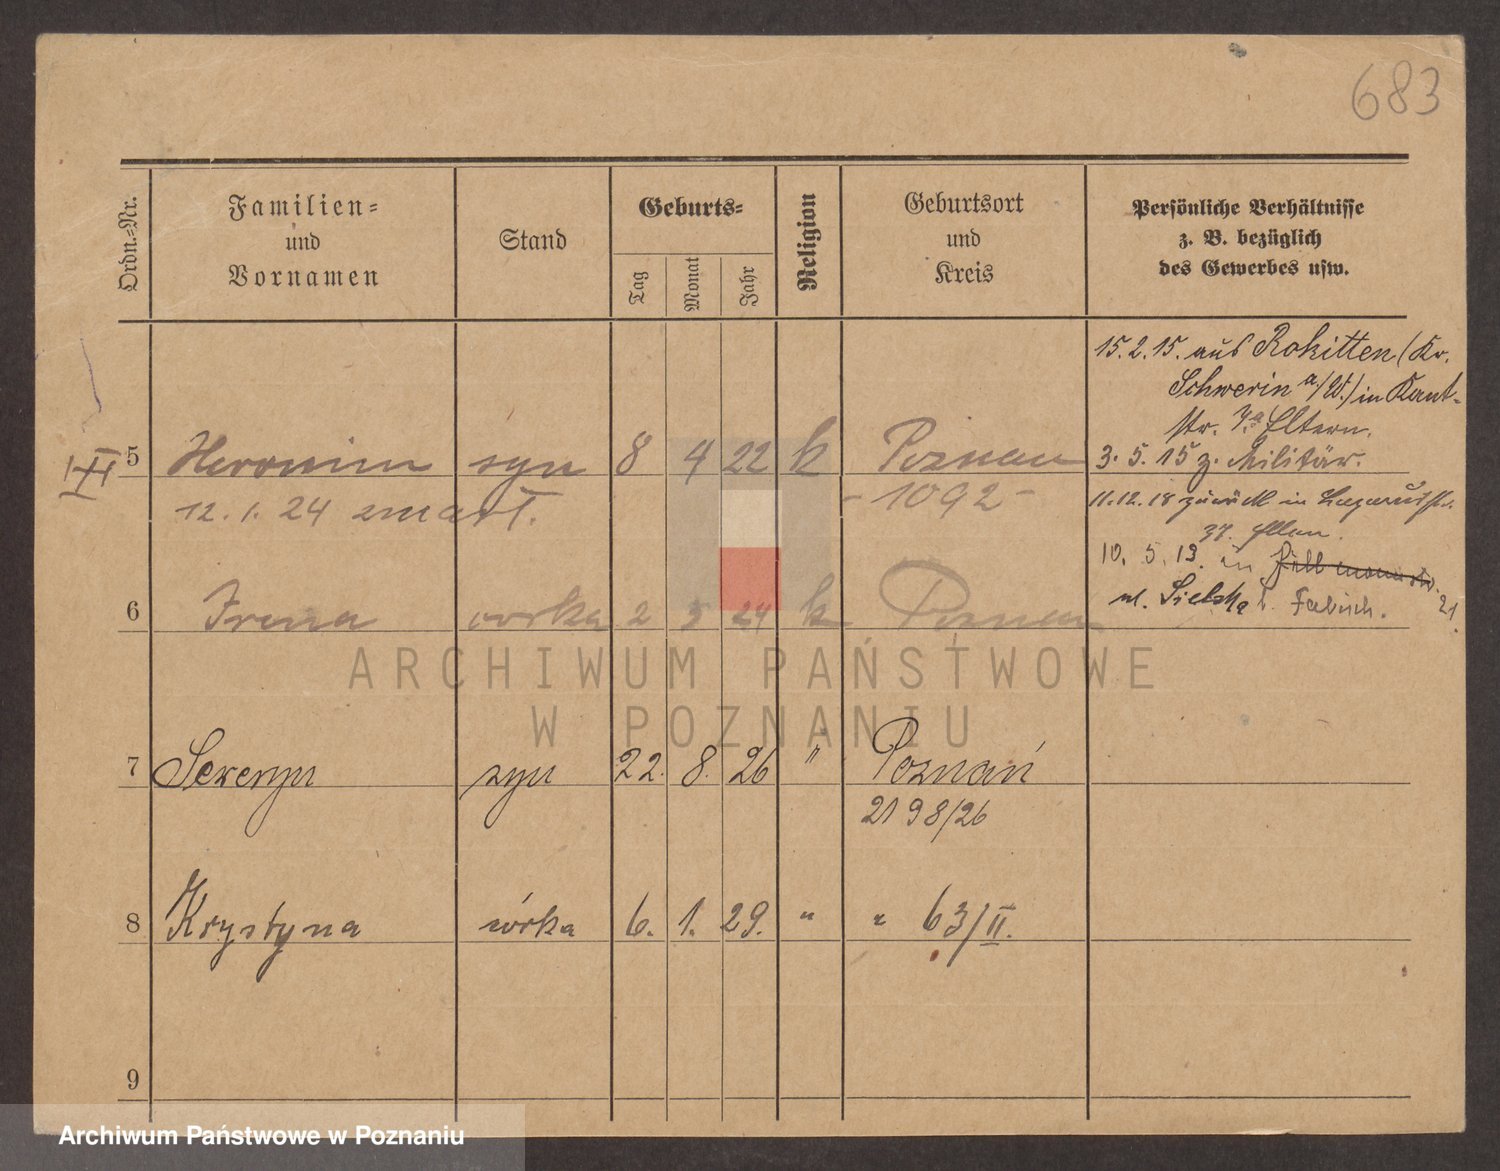 683
Ordn.=Nr.
Familien=
und
Vornamen
Stand
Geburts=
Tag
Monat
Jahr
Religion
Geburtsort
und
Kreis
Persönliche Verhältnisse
z. B. bezüglich
des Gewerbes usw.
15.2.15. aus Rokitten (Kr.
Schwerin a/W.) in Kant-
str. 7a Eltern.
5 Hieronim syn 8 4 22 k Poznan 3. 5. 15 z. Militär.
12. 1. 24 zmarł. - 1092 - 11.12.18 zurück in
37. Eltern.
10. 5. 19. in
6 Irena córka 2 3 24 k Poznan ul. Sielska b. Fabisch. 21.
ARCHIWUM PAŃSTWOWE
W POZNANIU
7 Seweryn syn 22. 8. 26 " Poznań
2198/26
8 Krystyna córka 6. 1. 29. " " 63/II.
9
Archiwum Państwowe w Poznaniu